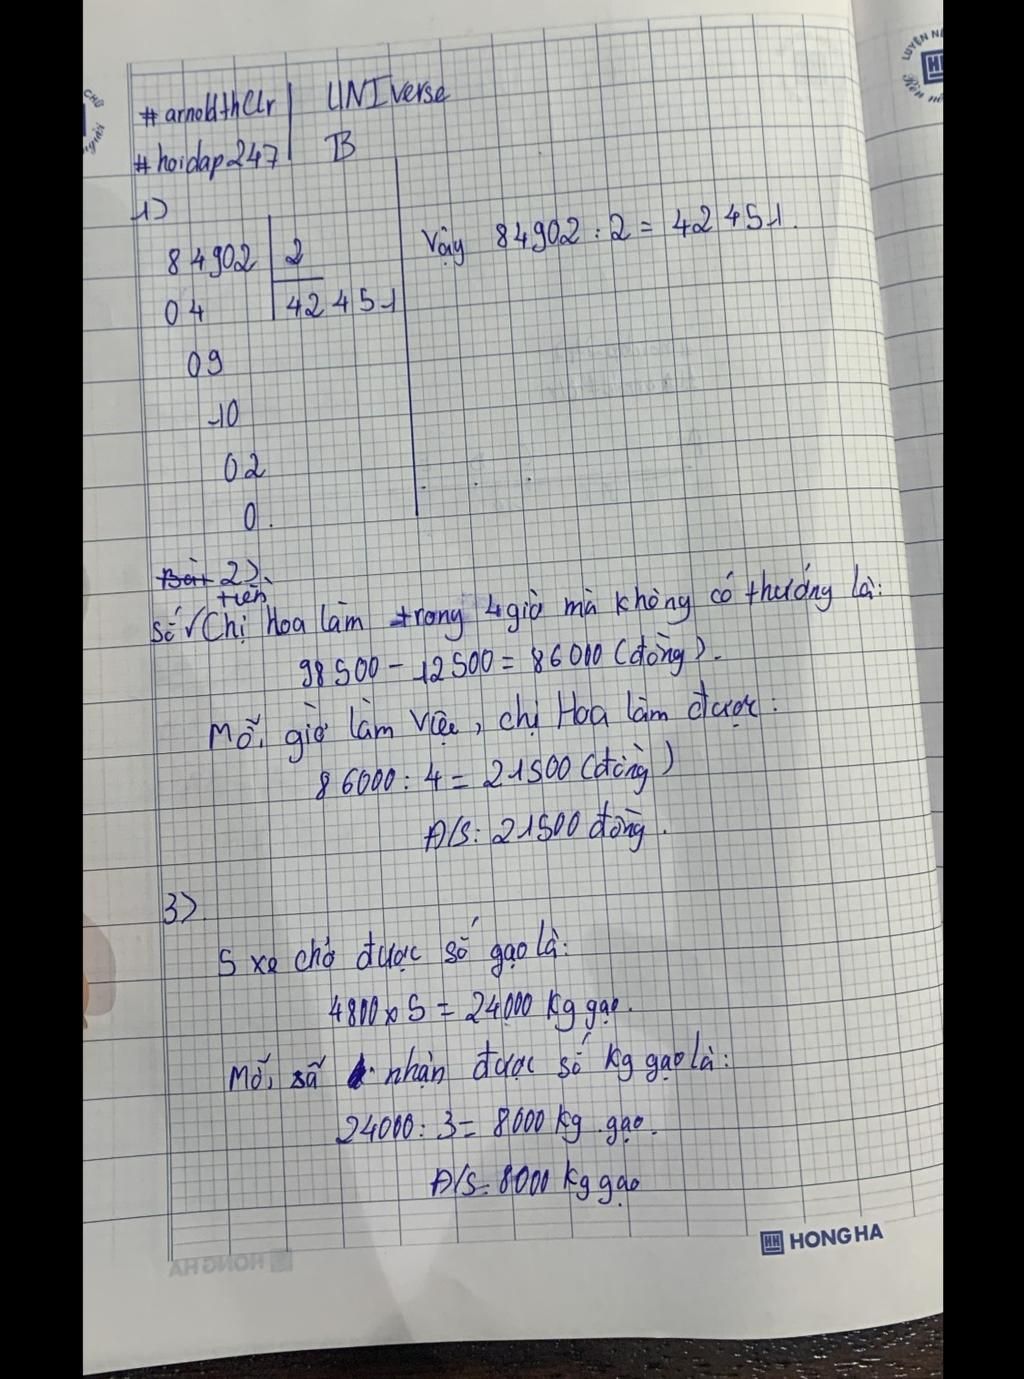 #arnoldthclr UNIverse
#hoidap247 B
1)
84902 2
04 42451
09
10
02
0.
Vậy 84902 : 2 = 42451.
Bài 2).
tiền
Số √ Chị Hoa làm trong 4 giờ mà không có thưởng là:
98500 - 12500 = 86000 (đồng).
Mỗi giờ làm việc, chị Hoa làm được:
86000 : 4 = 21500 (đồng)
Đ/S: 21500 đồng.
3).
5 xe chở được số gạo là:
4800 x 5 = 24000 kg gạo.
Mỗi xã nhận được số kg gạo là:
24000 : 3 = 8000 kg gạo.
Đ/S: 8000 kg gạo
HONG HA